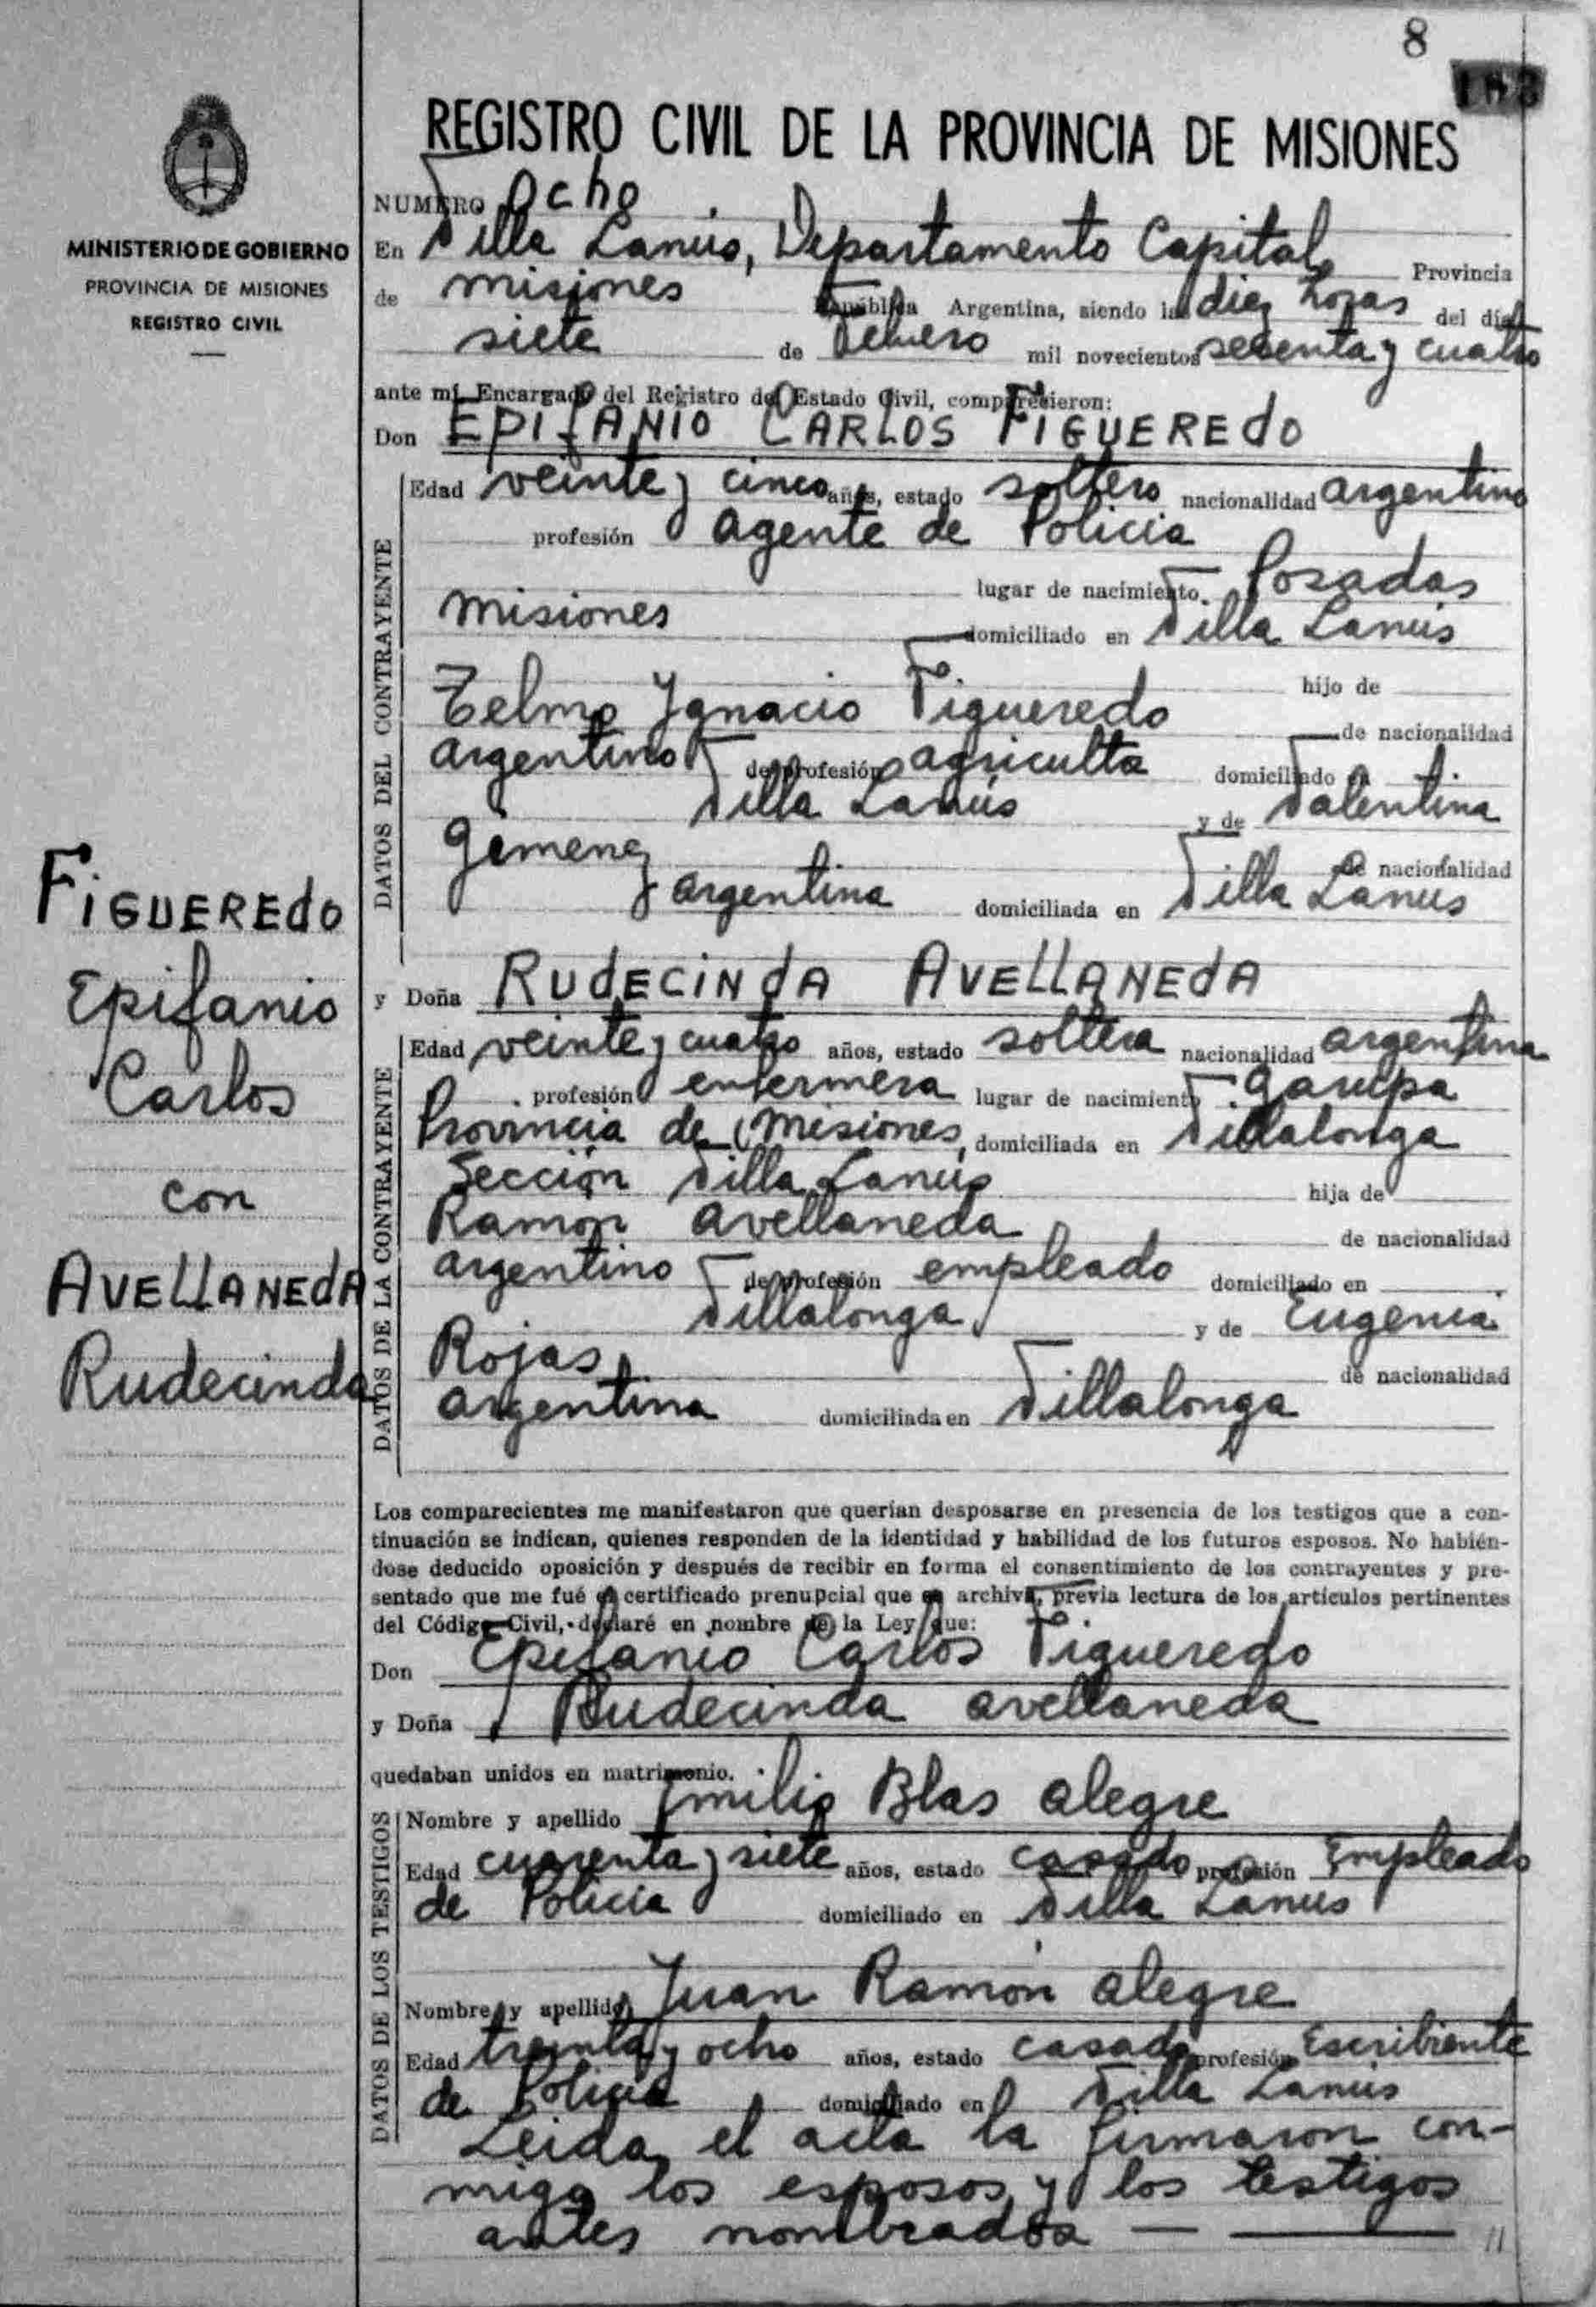 8
183
MINISTERIO DE GOBIERNO
PROVINCIA DE MISIONES
REGISTRO CIVIL
FIGUEREDO
Epifanio
Carlos
con
AVELLANEDA
Rudecinda
REGISTRO CIVIL DE LA PROVINCIA DE MISIONES
NUMERO Ocho
En Villa Lanús, Departamento Capital Provincia
de misiones República Argentina, siendo las diez horas del día
siete de Febrero mil novecientos sesenta y cuatro
ante mi Encargado del Registro del Estado Civil, comparecieron:
Don EPIFANIO CARLOS FIGUEREDO
DATOS DEL CONTRAYENTE
Edad veinte y cinco años, estado soltero nacionalidad argentino
profesión agente de Policia
lugar de nacimiento Posadas
misiones domiciliado en Villa Lanús
hijo de
Telmo Ygnacio Figueredo de nacionalidad
argentino de profesión agriculta domiciliado en
Villa Lanús y de Valentina
Gimenez de nacionalidad
argentina domiciliada en Villa Lanus
y Doña RUDECINDA AVELLANEDA
DATOS DE LA CONTRAYENTE
Edad veinte y cuatro años, estado soltera nacionalidad argentina
profesión enfermera lugar de nacimiento Garupa
Provincia de Misiones, domiciliada en Villalonga
Sección Villa Lanús hija de
Ramon avellaneda de nacionalidad
argentino de profesión empleado domiciliado en
Villalonga y de Eugenia
Rojas de nacionalidad
argentina domiciliada en Villalonga
Los comparecientes me manifestaron que querían desposarse en presencia de los testigos que a con-
tinuación se indican, quienes responden de la identidad y habilidad de los futuros esposos. No habién-
dose deducido oposición y después de recibir en forma el consentimiento de los contrayentes y pre-
sentado que me fué el certificado prenupcial que se archiva, previa lectura de los artículos pertinentes
del Código Civil, declaré en nombre de la Ley que:
Don Epifanio Carlos Figueredo
y Doña Rudecinda avellaneda
quedaban unidos en matrimonio.
DATOS DE LOS TESTIGOS
Nombre y apellido Emilio Blas alegre
Edad cuarenta y siete años, estado casado profesión Empleado
de Policia domiciliado en Villa Lanus
Nombre y apellido Juan Ramón alegre
Edad treinta y ocho años, estado casado profesión Escribiente
de Policia domiciliado en Villa Lanús
Leida el acta la firmaron con-
migo los esposos y los testigos
antes nombrados — —